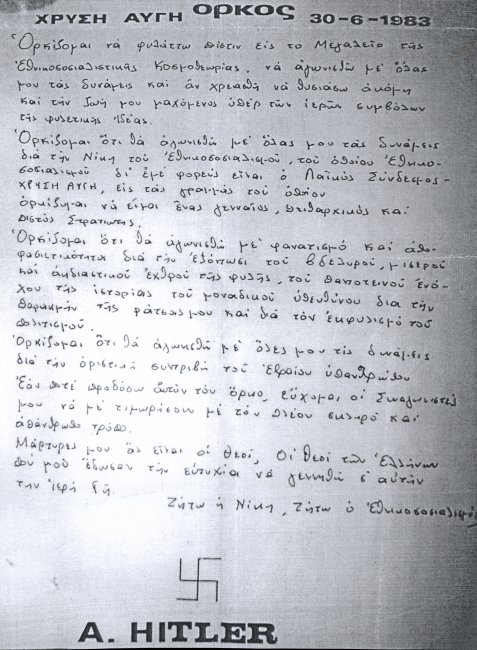 ΧΡΥΣΗ ΑΥΓΗ ΟΡΚΟΣ 30-6-1983
Ὁρκίζομαι νά φυλάττω πίστιν εἰς το Μεγαλεῖο τῆς
Ἐθνικοσοσιαλιστικῆς Κοσμοθεωρίας, νά ἀγωνισθῶ μέ ὅλας
μου τάς δυνάμεις καί ἄν χρειασθῆ νά θυσιάσω ἀκόμη
καί την ζωή μου μαχόμενος ὑπέρ τῶν ἱερῶν συμβόλων
τῆς φυλετικῆς Ἰδέας.
Ὁρκίζομαι ὅτι θά ἀγωνισθῶ μέ ὅλας μου τάς δυνάμεις
διά τήν Νίκη τοῦ Ἐθνικοσοσιαλισμοῦ, τοῦ ὁποίου Ἐθνικο-
σοσιαλισμοῦ δι' ἐμέ φορεύς εἶναι ὁ Λαϊκός Σύνδεσμος-
ΧΡΥΣΗ ΑΥΓΗ, εἰς τάς γραμμάς τοῦ ὁποίου
ὁρκίζομαι νά εἶμαι ἕνας γενναῖος, πειθαρχικός καί
πιστός Στρατιώτης.
Ὁρκίζομαι ὅτι θά ἀγωνισθῶ μέ φανατισμό καί ἀπο-
φασιστικότητα διά τήν ἐξόντωσι τοῦ βδελυροῦ, μισεροῦ
καί ἀηδιαστικοῦ ἐχθροῦ τῆς φυλῆς, τοῦ ταπεινοῦ ἐνό-
χου τῆς ἱστορίας τοῦ μοναδικοῦ ὑπευθύνου δια τήν
παρακμή τῆς ράτσας μου καί διά τόν ἐκφυλισμό τοῦ
πολιτισμοῦ.
Ὁρκίζομαι ὅτι θά ἀγωνισθῶ μέ ὅλες μου τίς δυνάμεις
διά τήν ὁριστική συντριβή τοῦ Ἑβραίου ὑπανθρώπου
Ἐάν ποτέ προδώσω αὐτόν τόν ὅρκο, εὔχομαι οἱ Συναγωνιστές
μου νά μέ τιμωρήσουν μέ τόν πλέον σκληρό καί
ἀπάνθρωπο τρόπο.
Μάρτυρες μου ἄς εἶναι οἱ Θεοί, Οἱ Θεοί τῶν Ἑλλήνων
πού μοῦ ἔδωσαν τήν εὐτυχία νά γεννηθῶ σ' αὐτήν
την ἱερή Γῆ.
Ζήτω ἡ Νίκη, Ζήτω ὁ Ἐθνικοσοσιαλισμός
A. HITLER